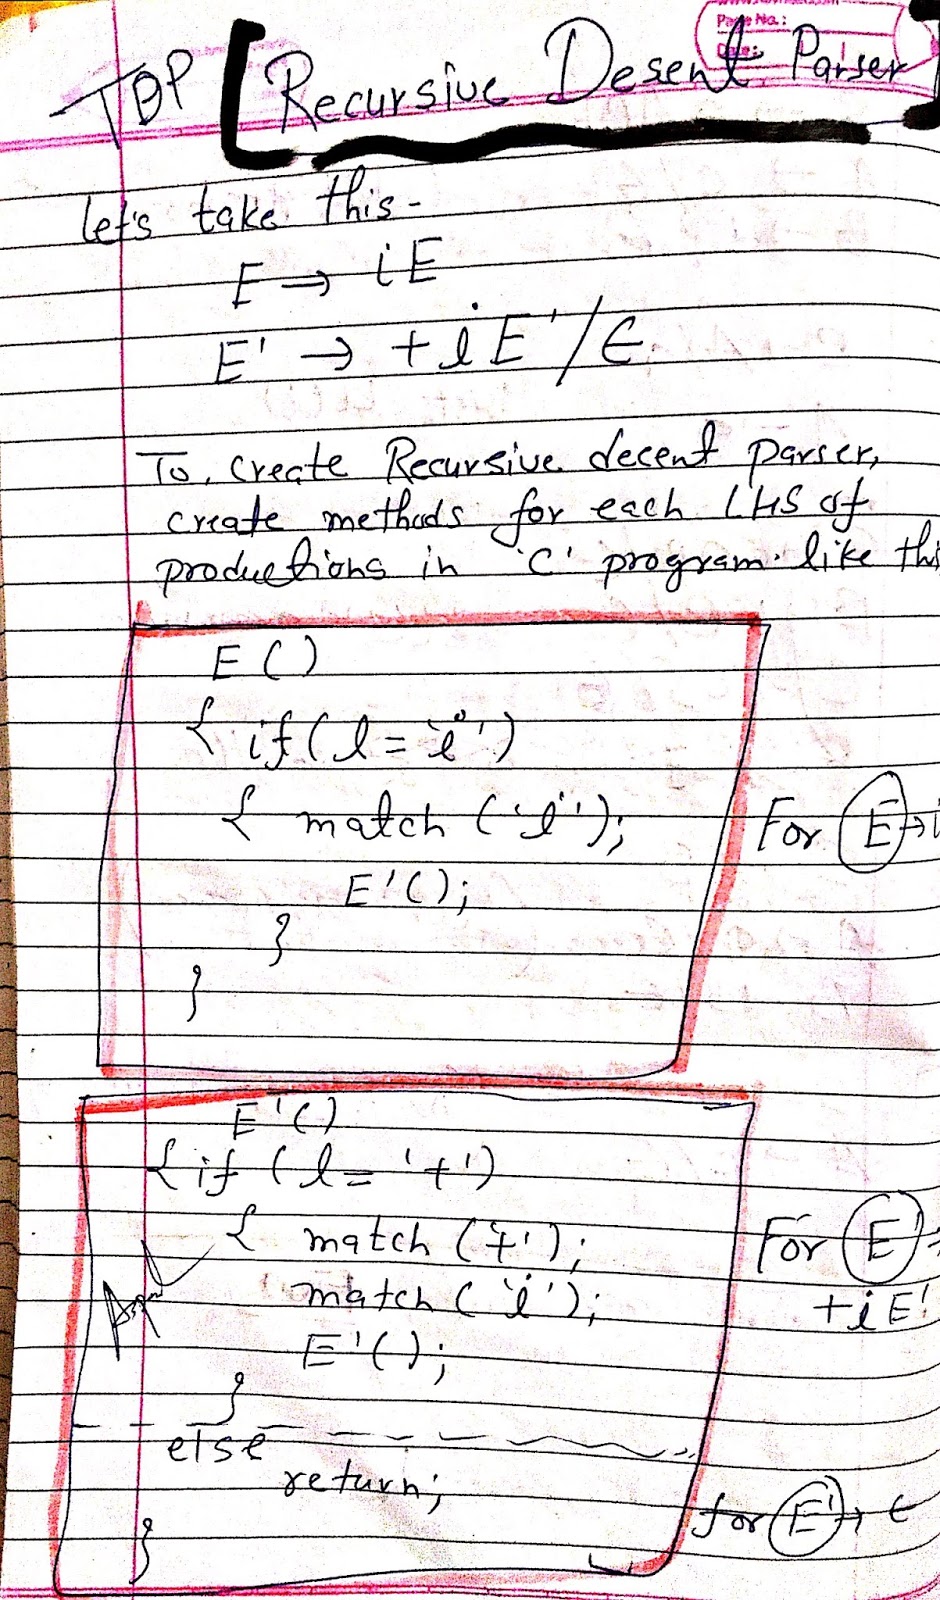 Page No.:
Date:
TDP [Recursive Desent Parser]
let's take this-
E → iE
E' → +iE'/ϵ
To, create Recursive decent parser,
create methods for each LHS of
productions in 'C' program. like thi
E()
{ if(l = 'i')
{ match ('i');
E'();
}
}
For E→i
E'()
{ if (l = '+')
{ match ('+');
match ('i');
E'();
}
else
return;
}
For E'→
+iE'
for E'→ ϵ